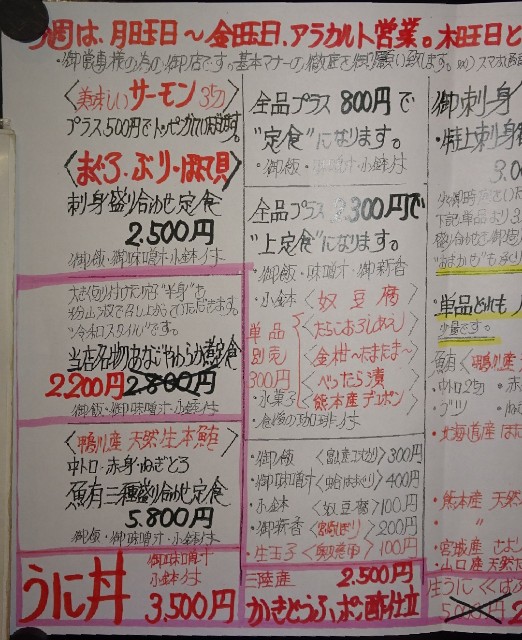 今週は、月曜日～金曜日、アラカルト営業。木曜日と
・御常連様の為の御店です。基本マナーの徹底を御願い致します。
〈美味しいサーモン3切〉
プラス500円でトッピングいただけます。
〈まぐろ・ぶり・ほタテ貝〉
刺身盛り合わせ定食
2.500円
御飯・御味噌汁・小鉢付
大きく切り付けた穴子"半身"を
召し上がっていただきます。
"令和スタイル"です。
当店名物あなごやわらか煮定食
2,200円 2.800円
御飯・御味噌汁・小鉢付
〈鴨川産 天然生本鮪〉
中トロ・赤身・ねぎとろ
魚有三種盛り合わせ定食
5.800円
御飯・御味噌汁・小鉢付
うに丼
御味噌汁
小鉢付
3,500円
全品プラス800円で
"定食"になります。
・御飯・御味噌汁・小鉢付
全品プラス1.300円で
"上定食"になります。
・御飯・味噌汁・御新香
・小鉢〈奴豆腐〉
単品別売300円
〈たらこおろしあえ〉
〈金柑～たまたま～〉
〈べったら漬〉
・水菓子〈熊本産デコポン〉
・食後の珈琲付
・御飯 300円
・御味噌汁 400円
・小鉢〈奴豆腐〉100円
・御新香 200円
・生玉子 100円
三陸産 2.500円
かきどうふ、ポン酢仕立
御刺身
・特上刺身
3.0
下記単品より3
盛り合わせ御造り
単品どれも
少量です。
魚有〈鴨川産
・中トロ2切
・ブツ
・北海道産 ほた
・熊本産 天然
・〃
・宮城産 さより
・山口産 天然
生うに〈
5.000円